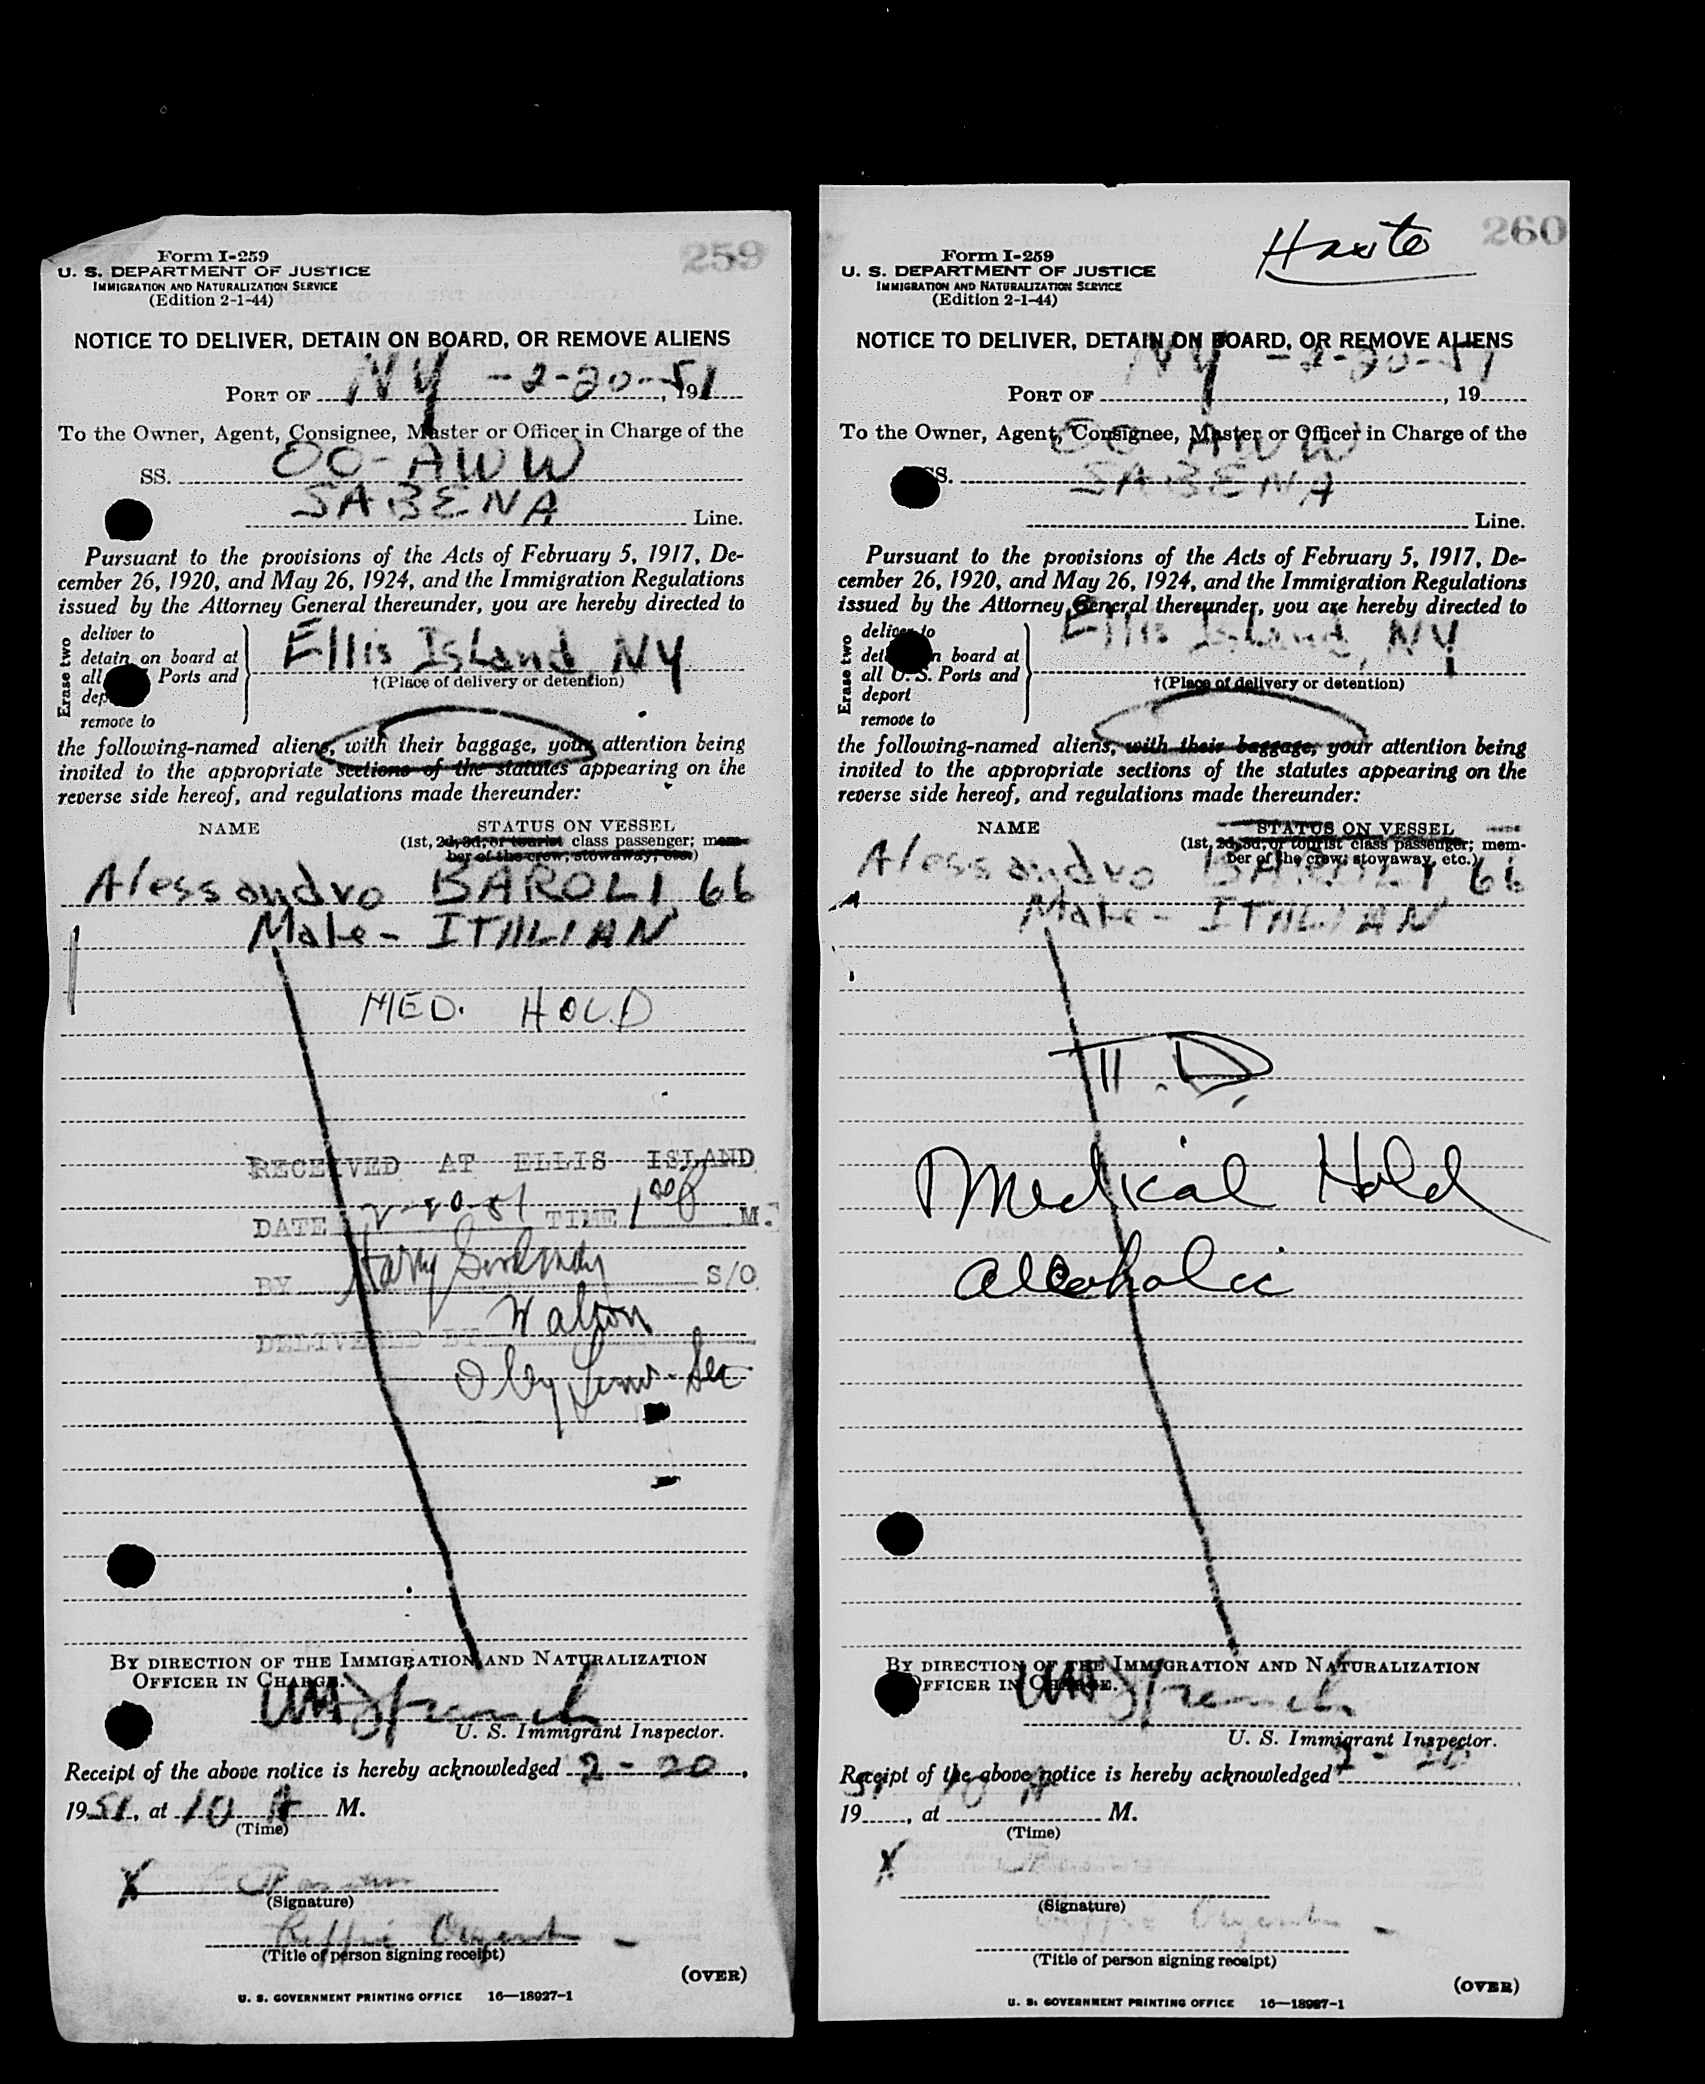 259
Form I-259
U. S. DEPARTMENT OF JUSTICE
IMMIGRATION AND NATURALIZATION SERVICE
(Edition 2-1-44)
NOTICE TO DELIVER, DETAIN ON BOARD, OR REMOVE ALIENS
PORT OF NY -2-20-51, 19
To the Owner, Agent, Consignee, Master or Officer in Charge of the
SS. OO-AWW
SABENA Line.
Pursuant to the provisions of the Acts of February 5, 1917, De-
cember 26, 1920, and May 26, 1924, and the Immigration Regulations
issued by the Attorney General thereunder, you are hereby directed to
Erase two
deliver to
detain on board at
all Ports and
dep
remove to
Ellis Island, NY
†(Place of delivery or detention)
the following-named aliens, with their baggage, your attention being
invited to the appropriate sections of the statutes appearing on the
reverse side hereof, and regulations made thereunder:
NAME STATUS ON VESSEL
(1st, 2d, 3d, or tourist class passenger; mem-
ber of the crew; stowaway, etc.)
Alessandro BAROLI 66
Male - ITALIAN
MED. HOLD
RECEIVED AT ELLIS ISLAND
DATE 2-20-51 TIME 1 00 P M.
BY Harry S/O
DELIVERED BY Walton
BY DIRECTION OF THE IMMIGRATION AND NATURALIZATION
OFFICER IN CHARGE.
French
U. S. Immigrant Inspector.
Receipt of the above notice is hereby acknowledged 2 - 20,
1951, at 10 A M.
(Time)
X
(Signature)
Agent -
(Title of person signing receipt)
(OVER)
U. S. GOVERNMENT PRINTING OFFICE 16—18927-1
260
Form I-259
U. S. DEPARTMENT OF JUSTICE
IMMIGRATION AND NATURALIZATION SERVICE
(Edition 2-1-44)
NOTICE TO DELIVER, DETAIN ON BOARD, OR REMOVE ALIENS
NY - 2-20-51
PORT OF , 19
To the Owner, Agent, Consignee, Master or Officer in Charge of the
OO-AWW
SS. SABENA
Line.
Pursuant to the provisions of the Acts of February 5, 1917, De-
cember 26, 1920, and May 26, 1924, and the Immigration Regulations
issued by the Attorney General thereunder, you are hereby directed to
Erase two
deliver to
detain on board at
all U. S. Ports and
deport
remove to
Ellis Island, NY
†(Place of delivery or detention)
the following-named aliens, with their baggage, your attention being
invited to the appropriate sections of the statutes appearing on the
reverse side hereof, and regulations made thereunder:
NAME STATUS ON VESSEL
(1st, 2d, 3d, or tourist class passenger; mem-
ber of the crew; stowaway, etc.)
Alessandro BAROLI 66
Male - ITALIAN
T.D.
Medical Hold
alcoholic
BY DIRECTION OF THE IMMIGRATION AND NATURALIZATION
OFFICER IN CHARGE.
French
U. S. Immigrant Inspector.
Receipt of the above notice is hereby acknowledged 2 - 20
51 10 A
19, at M.
(Time)
X
(Signature)
Agent -
(Title of person signing receipt)
(OVER)
U. S. GOVERNMENT PRINTING OFFICE 16—18927-1